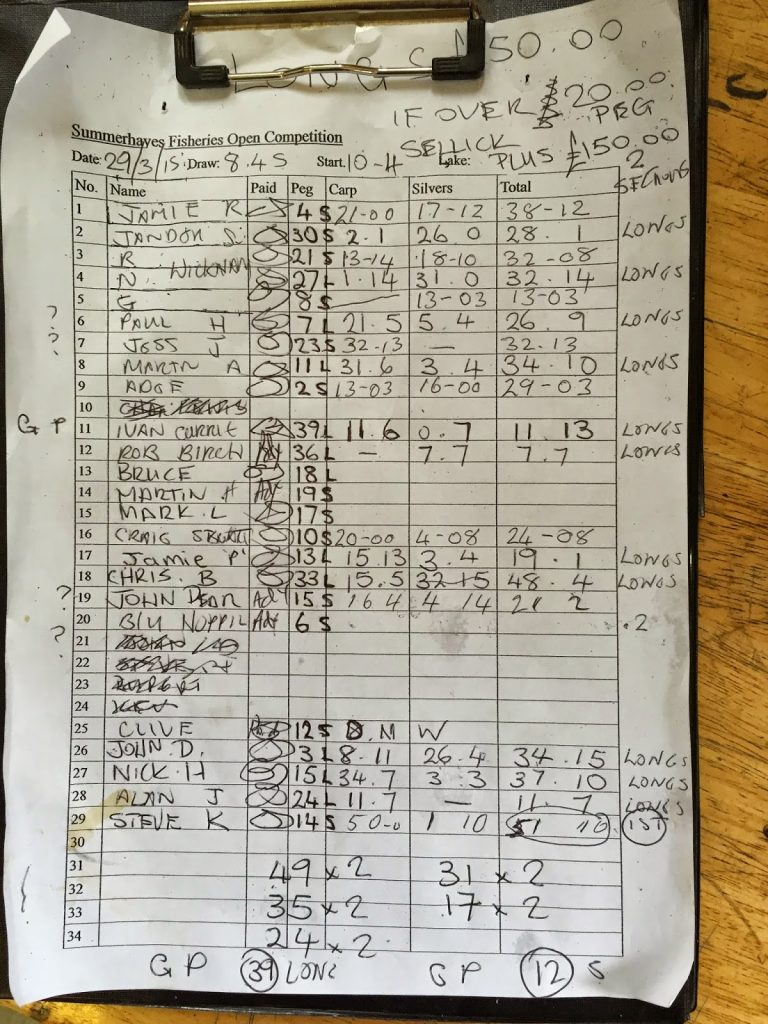 LONGS £50.00
IF OVER £20.00 PEG
SELLICK PLUS £150.00
2 SECTIONS
Summerhayes Fisheries Open Competition
Date: 29/3/15 Draw: 8.45 Start. 10-4 Lake:
No. Name Paid Peg Carp Silvers Total
1 JAMIE R 4 S 21-00 17-12 38-12
2 JANDOR S. 30 S 2.1 26.0 28.1 LONGS
3 R 21 S 13-14 18-10 32-08
4 N. WICKHAM 27 L 1.14 31.0 32.14 LONGS
5 G 8 S 13-03 13-03
6 PAUL H 7 L 21.5 5.4 26.9 LONGS
7 JESS J 23 S 32-13 — 32.13
8 MARTN A 11 L 31.6 3.4 34.10 LONGS
9 ADGE 2 S 13-03 16-00 29-03
10
GP 11 IVAN CURRIE 39 L 11.6 0.7 11.13 LONGS
12 ROB BIRCH 36 L — 7.7 7.7 LONGS
13 BRUCE 18 L
14 MARTIN H 19 S
15 MARK.L 17 S
16 CRAIG 10 S 20-00 4-08 24-08
17 Jamie P 13 L 15.13 3.4 19.1 LONGS
18 CHRIS. B 33 L 15.5 32-15 48.4 LONGS
19 JOHN DEAN 15 S 16 4 4 14 21 2
20 6 S .2
21
22
23
24
25 CLIVE 12 S D.N W
26 JOHN D. 3 L 8.11 26.4 34.15 LONGS
27 NICK.H 15 L 34.7 3.3 37.10 LONGS
28 ALAN J 24 L 11.7 — 11.7 LONGS
29 STEVE K 14 S 50-0 1 10 51 10 1ST
30
31 49 x 2 31 x 2
32
33 35 x 2 17 x 2
34 24 x 2
GP 39 LONG GP 12 S